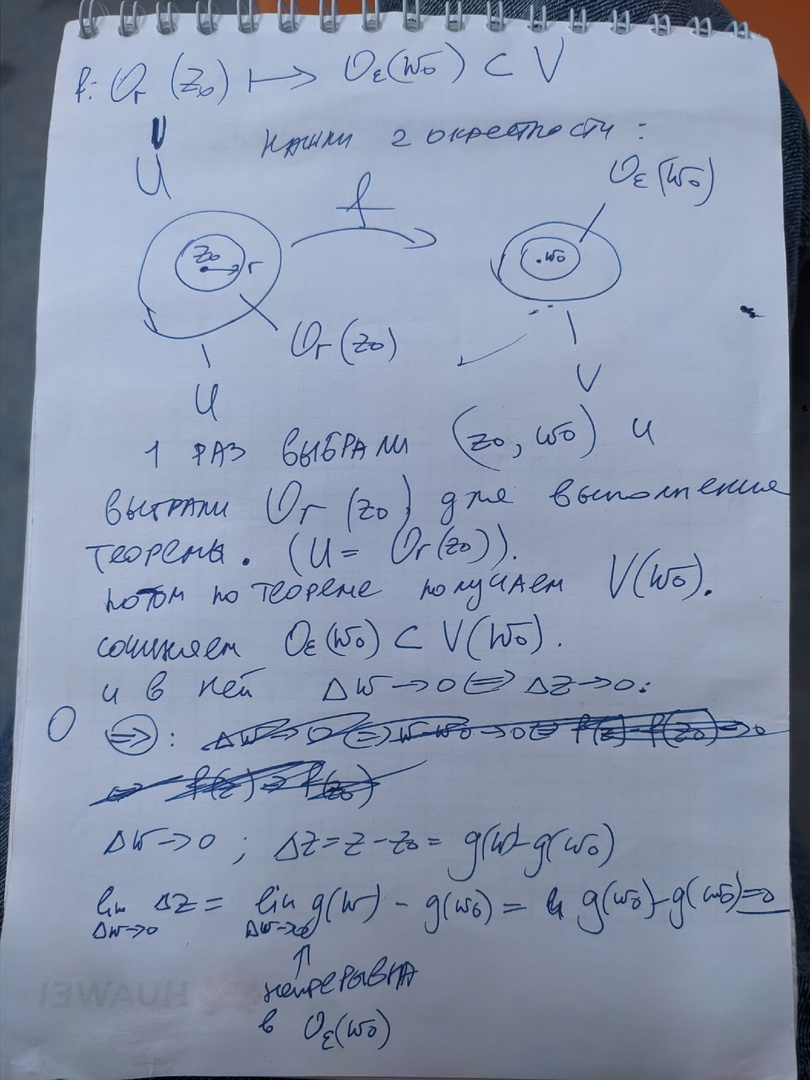 f: O_r (z_0) ↦ O_ε(w_0) ⊂ V
U
нашли 2 окрестности:
O_ε(w_0)
f
z_0 r
w_0
O_r (z_0)
U
V
1 раз выбрали (z_0, w_0) и
выбрали O_r (z_0) для выполнения
теоремы. (U = O_r(z_0)).
потом по теореме получаем V(w_0).
сочиняем O_ε(w_0) ⊂ V(w_0).
и в ней Δw → 0 ⇔ Δz → 0:
⇒ :
Δw → 0 ; Δz = z - z_0 = g(w) - g(w_0)
lim Δz = lim g(w) - g(w_0) = g(w_0) - g(w_0) = 0
Δw→0 Δw→0
↑
непрерывна
в O_ε(w_0)
HUAWEI